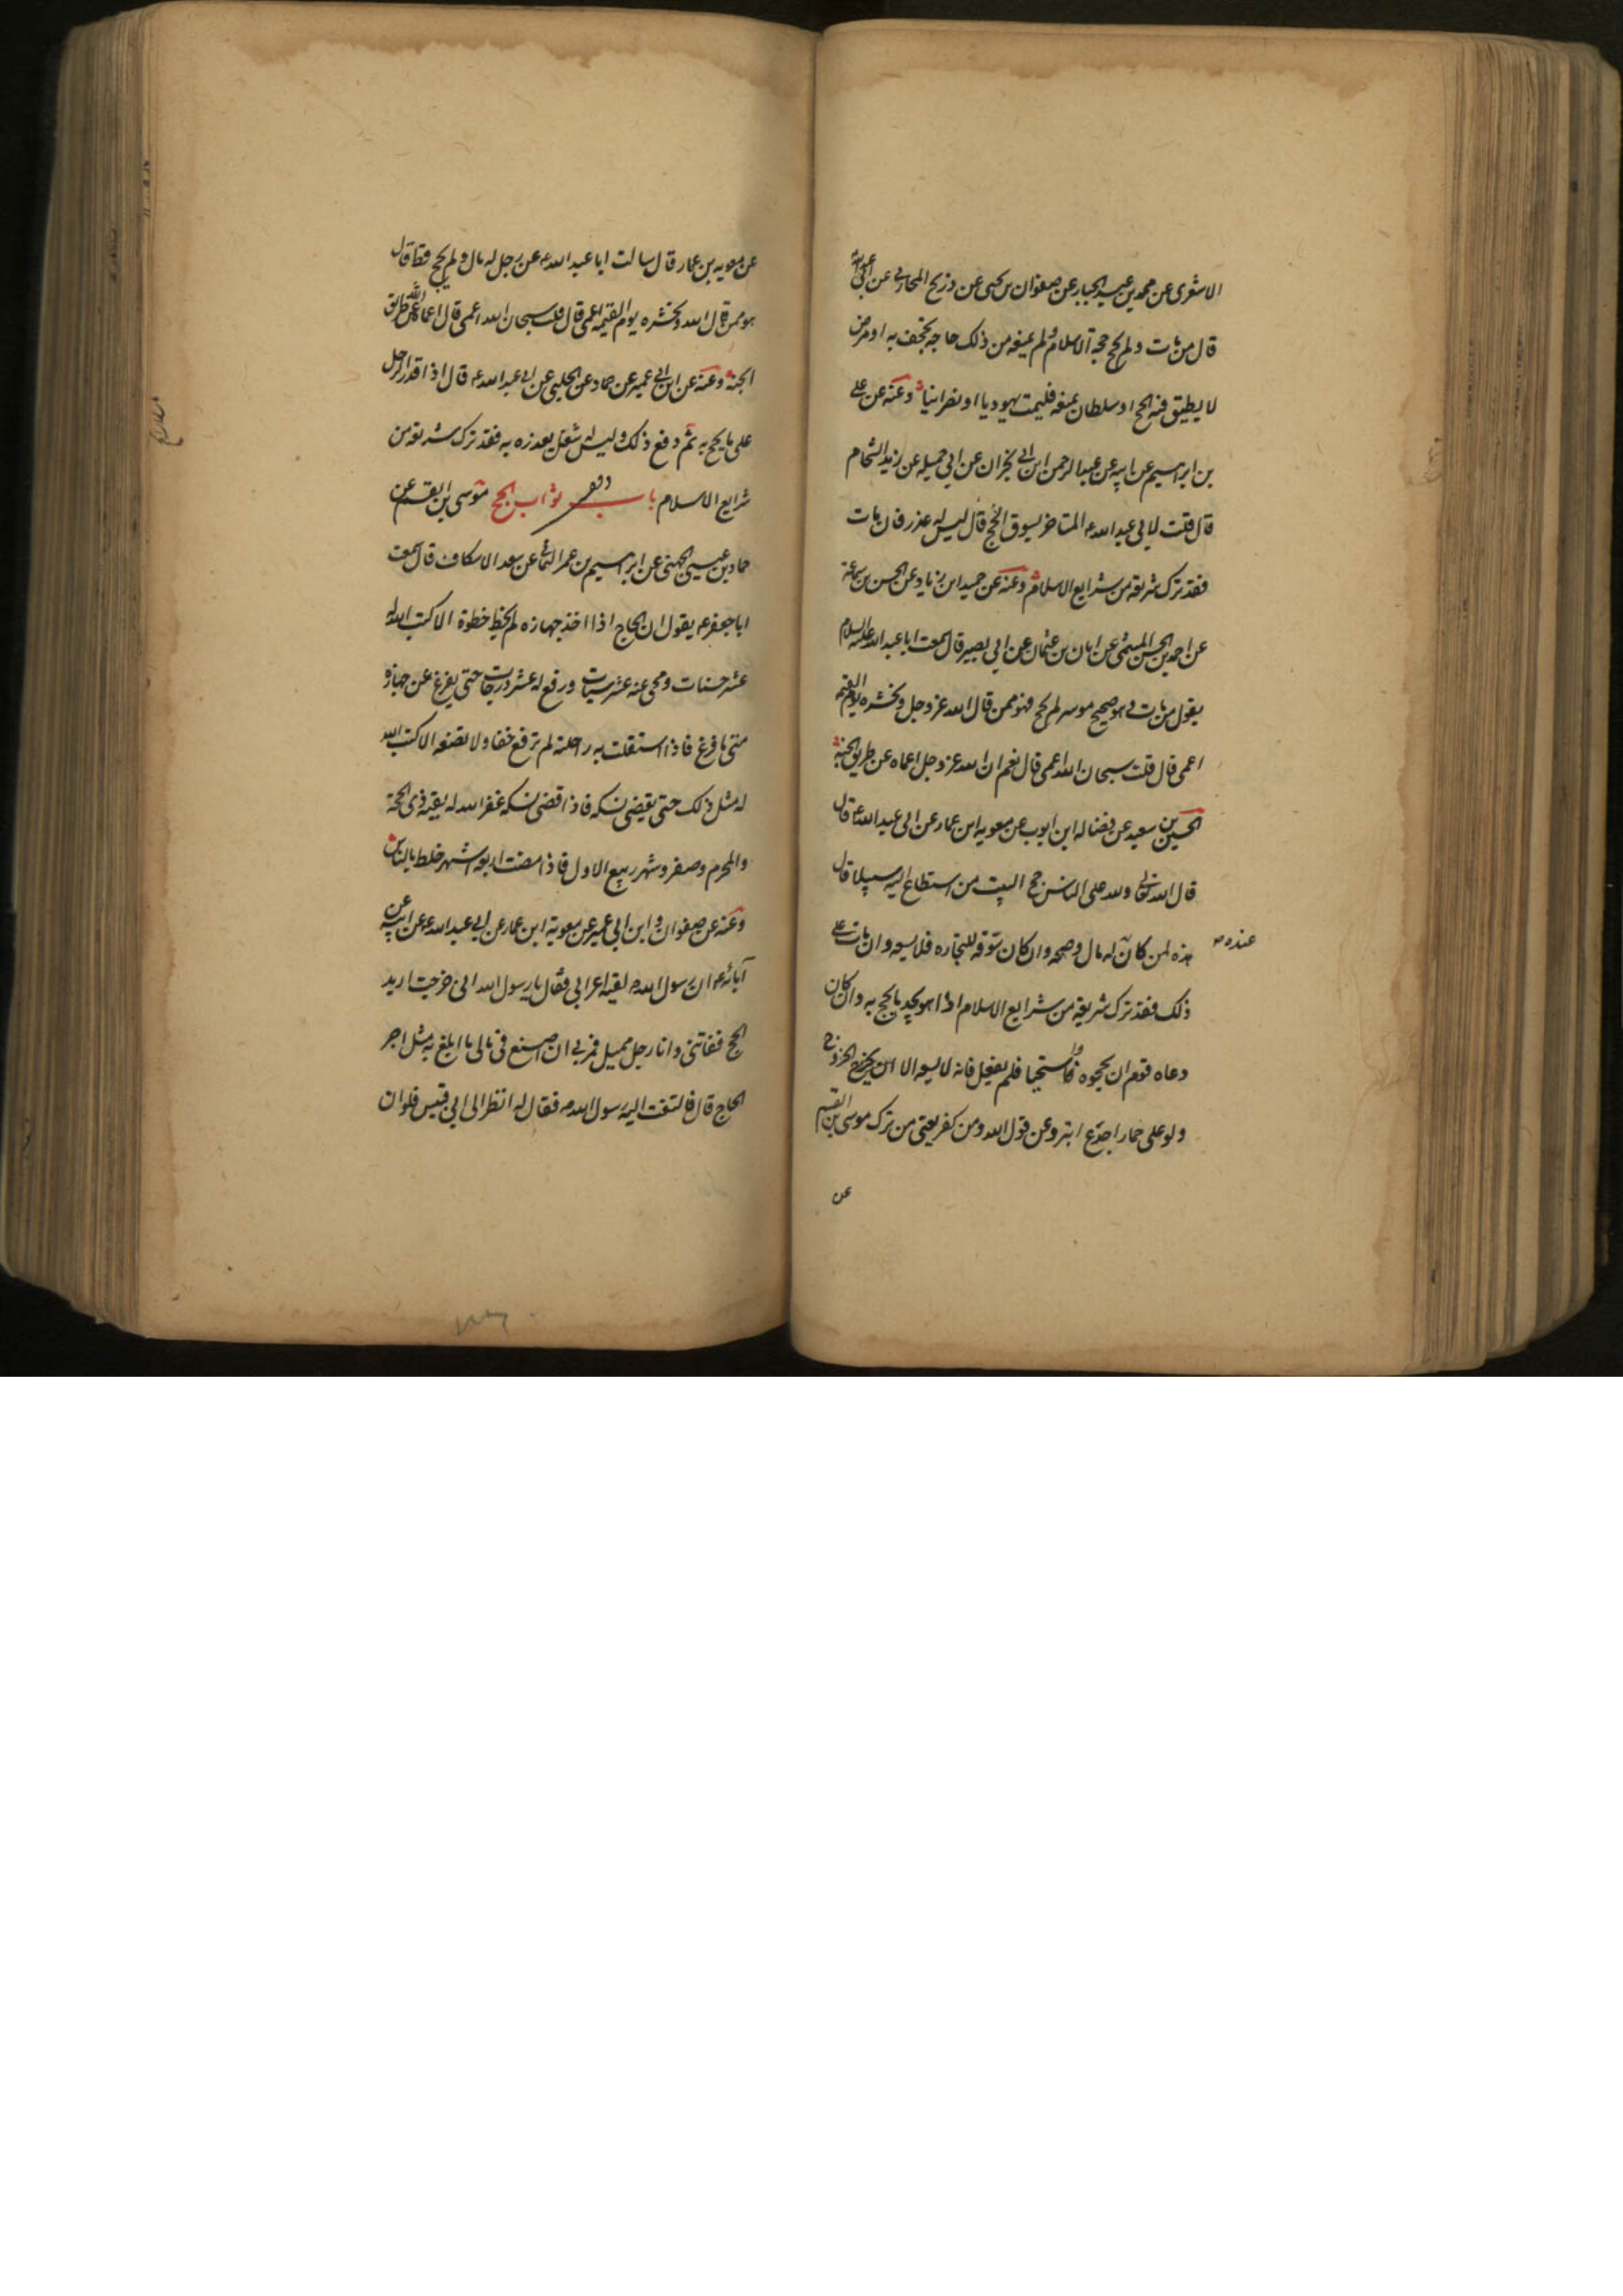 الاشعرى عن محمد بن عبد الجبار عن صفوان بن يحيى عن ذريح المحاربى عن ابى عبد الله ع
قال من مات ولم يحج حجة الاسلام ولم يمنعه من ذلك حاجه تجحف به او مرض
لا يطيق فيه الحج او سلطان يمنعه فليمت يهوديا او نصرانيا وعنه عن على
بن ابراهيم عن ابيه عن عبد الرحمن ابن ابى نجران عن ابى جميله عن زيد الشحام
قال قلت لابى عبد الله ع المتاخر يسوق الحج قال ليس له عذر فان مات
فقد ترك شريعه من شرايع الاسلام وعنه عن حميد ابن زياد عن الحسن بن سماعة
عن احمد بن الحسن الميثمى عن ابان بن عثمان عن ابى بصير قال سمعت ابا عبد الله عليه السلام
يقول من مات وهو صحيح موسر لم يحج فهو ممن قال الله عز وجل ونحشره يوم القيمه
اعمى قال قلت سبحان الله اعمى قال نعم ان الله عز وجل اعماه عن طريق الجنة
الحسين بن سعيد عن فضاله ابن ايوب عن معويه ابن عمار عن ابى عبد الله ع قال
قال الله تعالى ولله على الناس حج البيت من استطاع اليه سبيلا قال
هذه لمن كان له مال وصحه وان كان سوّقه للتجاره فلا يسعه وان مات على
عنده
ذلك فقد ترك شريعه من شرايع الاسلام اذا هو يجد ما يحج به وان كان
دعاه قوم ان يحجوه فاستحيا فلم يفعل فانه لا يسعه الا ان يخرج الخروج
ولو على حمار اجدع ابتر وعن قول الله ومن كفر يعنى من ترك موسى بن القسم
عن
عن معويه بن عمار قال سالت ابا عبد الله ع عن رجل له مال ولم يحج قط قال
هو ممن قال الله ونحشره يوم القيمه اعمى قال قلت سبحان الله اعمى قال اعماه الله عن طريق
الجنة وعنه عن ابن ابى عمير عن حماد عن الحلبى عن ابى عبد الله ع قال اذا قدر الرجل
على ما يحج به ثم دفع ذلك وليس له شغل يعذره به فقد ترك شريعه من
شرايع الاسلام باب ثواب الحج موسى بن القسم عن
حماد بن عيسى الجهنى عن ابراهيم بن عمر اليمانى عن سعد الاسكاف قال سمعت
ابا جعفر ع يقول ان الحاج اذا اخذ جهازه لم يخط خطوة الا كتب الله له
عشر حسنات ومحى عنه عشر سيئات ورفع له عشر درجات حتى يفرغ عن جهازه
متى ما فرغ فاذا استقلت به راحلته لم ترفع خفا ولا تضعه الا كتب الله
له مثل ذلك حتى يقضى نسكه فاذا قضى نسكه غفر الله له بقية ذى الحجة
والمحرم وصفر وشهر ربيع الاول فاذا مضت اربعة اشهر خلط بالناس
وعنه عن صفوان وابن ابى عمير عن معوية ابن عمار عن ابى عبد الله ع عن ابيه عن
آبائه ع ان رسول الله ص لقيه اعرابى فقال يا رسول الله انى خرجت اريد
الحج ففاتنى وانا رجل مميل فمرنى ان اصنع فى مالى ما ابلغ به مثل اجر
الحاج قال فالتفت اليه رسول الله ص فقال له انظر الى ابى قبيس فلو ان